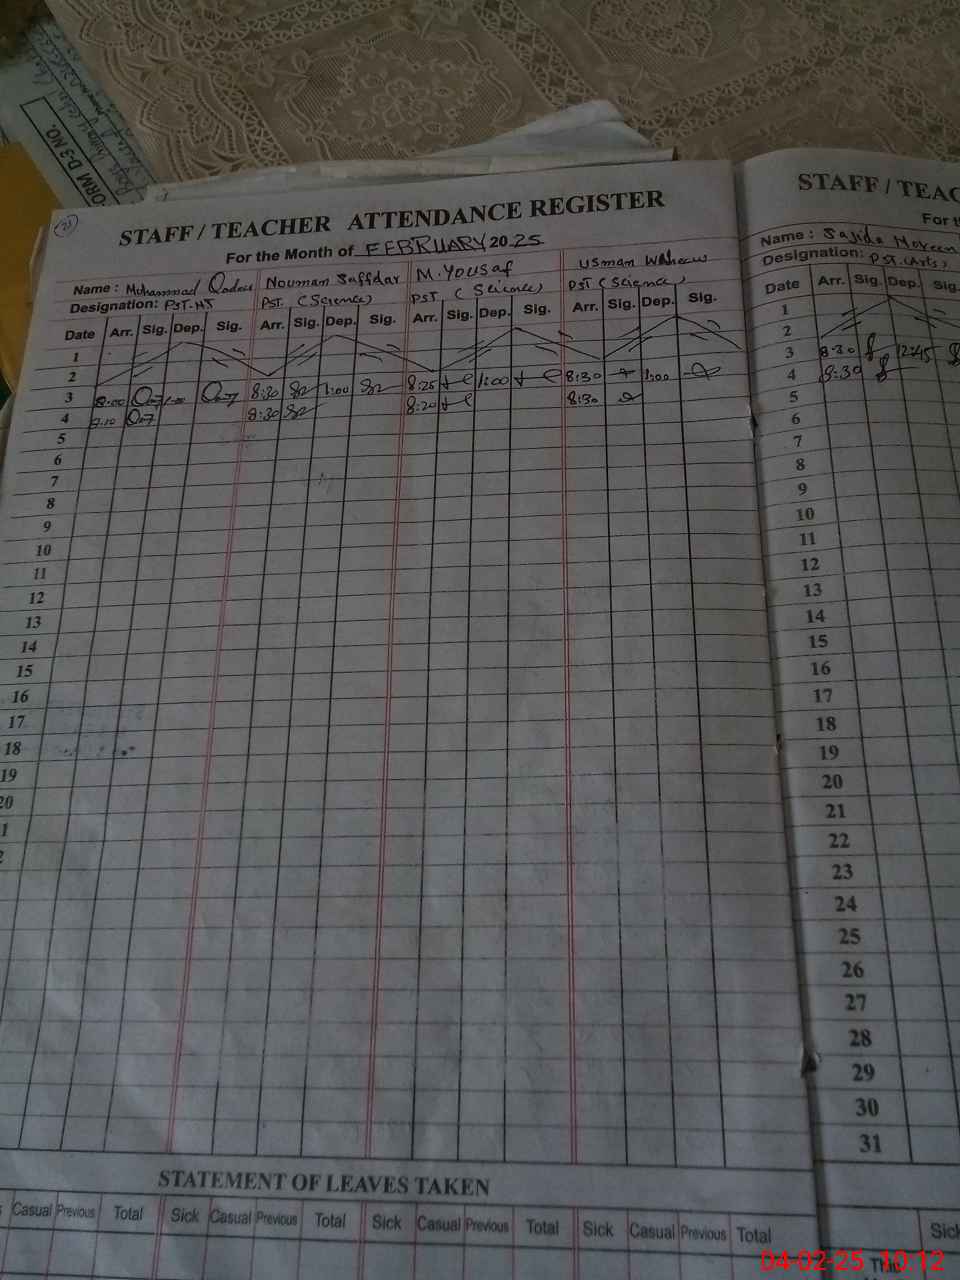 FORM D-3 NO.
23
STAFF / TEACHER ATTENDANCE REGISTER
For the Month of FEBRUARY 2025
Name : Muhammad Qadeer Nouman Saffdar M. Yousaf Usman Waheed
Designation: PST.HT PST. (Science) PST (Science) PST (Science)
Date Arr. Sig. Dep. Sig. Arr. Sig. Dep. Sig. Arr. Sig. Dep. Sig. Arr. Sig. Dep. Sig.
1
2
3 8:00 1:00 8:30 1:00 8:25 1:00 8:30 1:00
4 8:10 8:30 8:20 8:30
5
6
7
8
9
10
11
12
13
14
15
16
17
18
19
20
1
2
STATEMENT OF LEAVES TAKEN
s Casual Previous Total Sick Casual Previous Total Sick Casual Previous Total Sick Casual Previous Total
STAFF / TEAC
For t
Name : Sajida Noreen
Designation: PST. (Arts)
Date Arr. Sig. Dep. Sig.
1
2
3 8:30 12:45
4 8:30
5
6
7
8
9
10
11
12
13
14
15
16
17
18
19
20
21
22
23
24
25
26
27
28
29
30
31
Sick
This
04-02-25 10:12